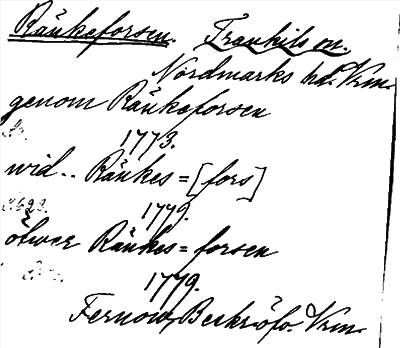 Räukeforsen. Trankils sn.
Nordmarks hd. Vrm.
genom Räukeforsen
1773.
wid.. Räukes=[fors]
1779.
öfwer Räukes=forsen
1779.
Fernow, Beskr. öfv. Vrm.